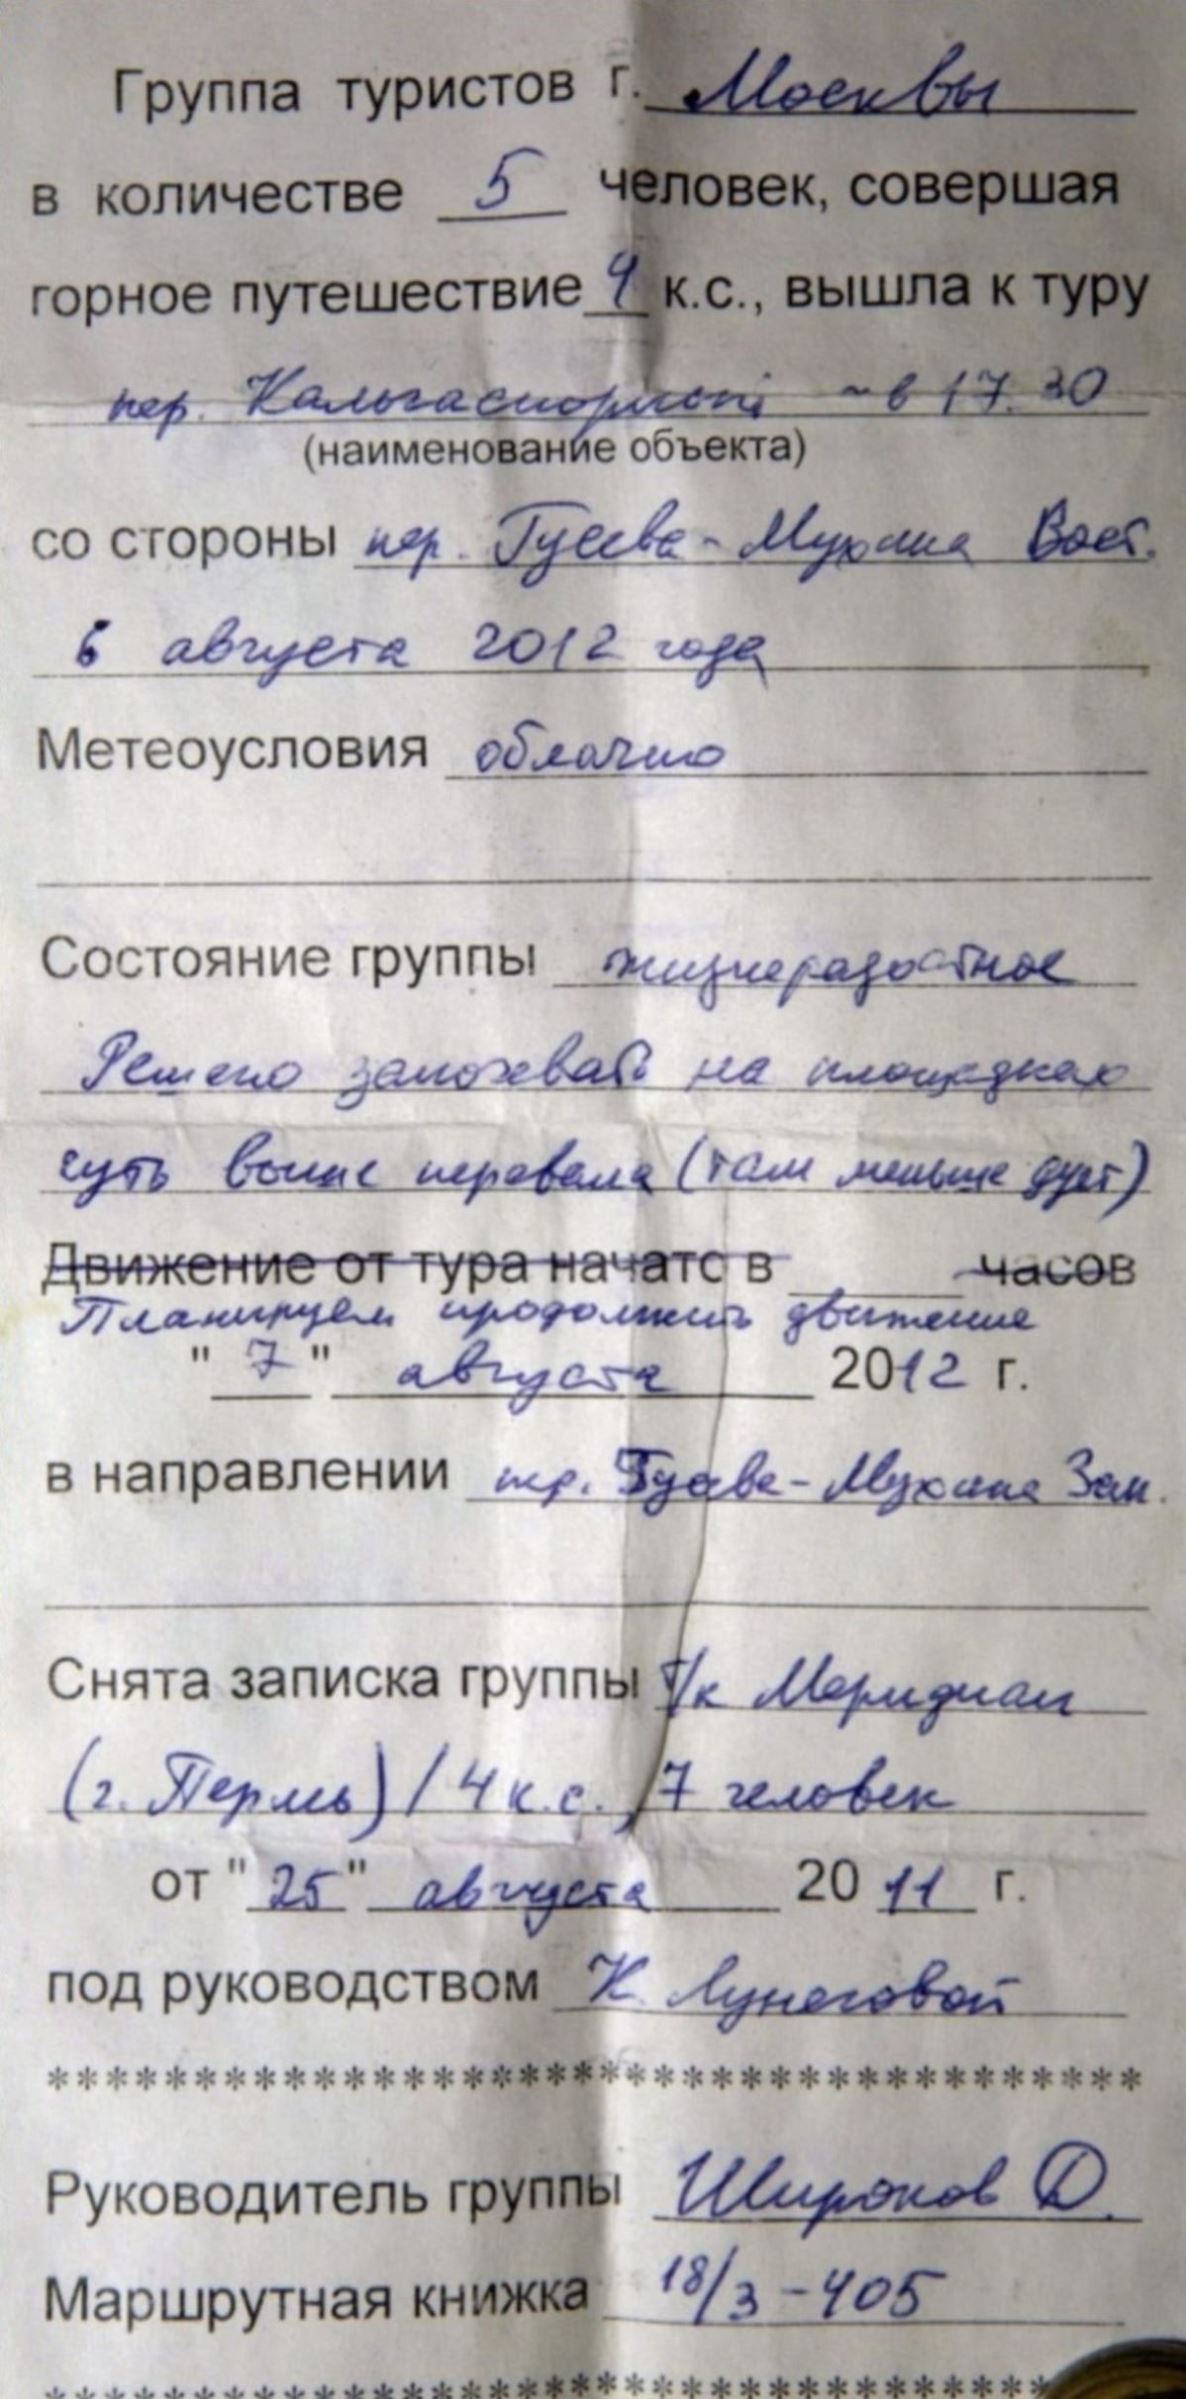 Группа туристов г. Москвы
в количестве 5 человек, совершая
горное путешествие 4 к.с., вышла к туру
пер. Кальгаспорный ~ в 17.30
(наименование объекта)
со стороны пер. Гусева-Мухина Вост.
6 августа 2012 года
Метеоусловия облачно
Состояние группы жизнерадостное
Решено заночевать на площадках
чуть выше перевала (там меньше дует)
Движение от тура начато в часов
Планируем продолжить движение
"7" августа 2012 г.
в направлении пер. Гусева-Мухина Зап.
Снята записка группы т/к Меридиан
(г. Пермь) / 4 к.с., 7 человек
от "25" августа 2011 г.
под руководством К. Лунеговой
*************************************
Руководитель группы Широков Д.
Маршрутная книжка 18/3-405